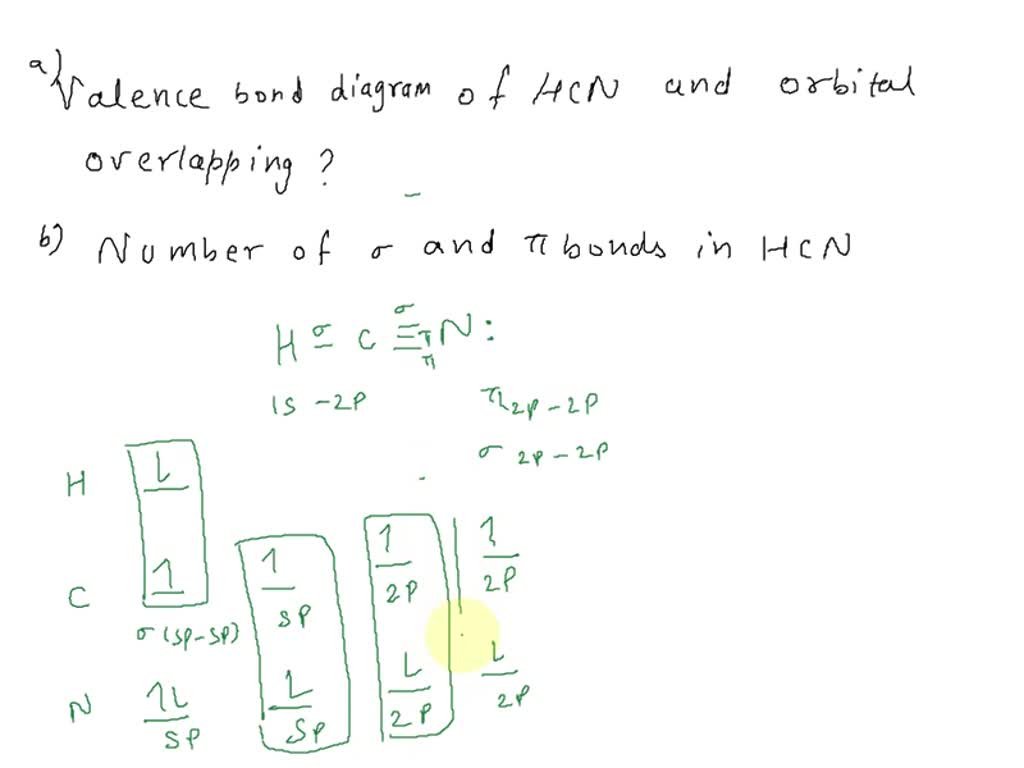 a) Valence bond diagram of HCN and orbital
overlapping ?
b) Number of σ and π bonds in HCN
σ σ
H – C ≡ N :
π
π
1s -2P π 2P-2P
σ 2P-2P
H 1
C 1 1 1 1
σ (SP-SP) SP 2P 2P
N 1L L L L
SP SP 2P 2P